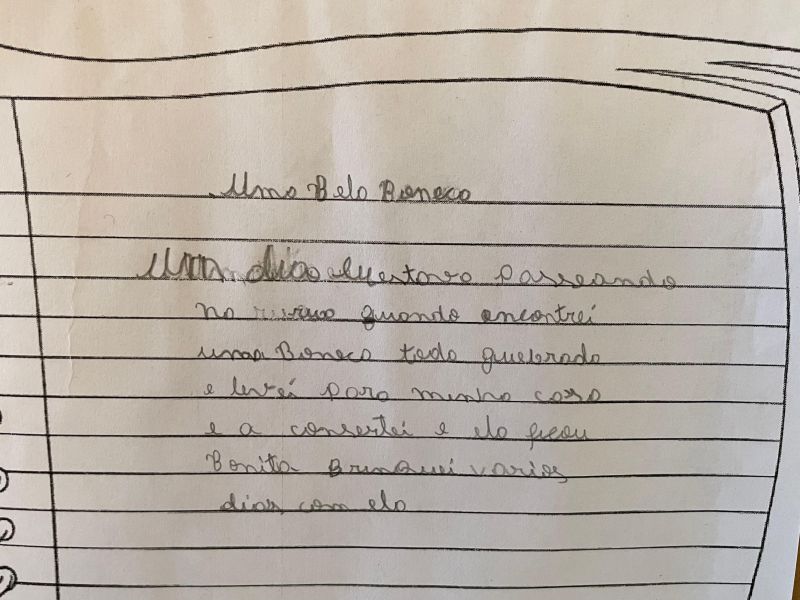 Uma Bela Boneca
Um dia eu estava Passeando
na rua quando encontrei
uma Boneca toda quebrada
e levei para minha casa
e a consertei e ela ficou
Bonita Brinquei varios
dias com ela